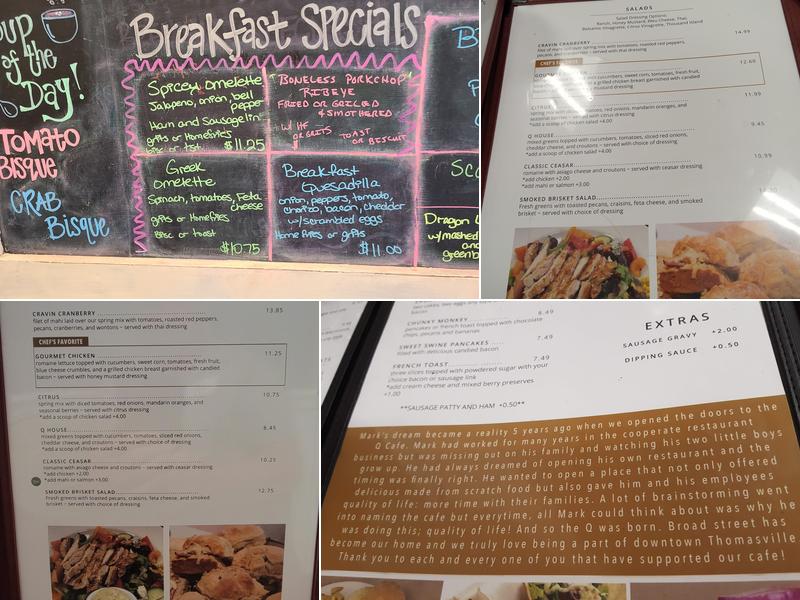 oup
of the
Day!
Tomato
Bisque
CRAB
Bisque
Breakfast Specials
Spicey omelette
Jalapeno, onion bell
pepper
Ham and Sausage link
grits or Homefries
$11.25
BONELESS PORKCHOP
RIBEYE
FRIED OR GRILLED
& SMOTHERED
W/ HF
OR GRITS
TOAST
OR BISCUIT
Greek
omelette
Spinach, tomatoes, Feta
cheese
grits or Homefries
Bisc or toast
$10.75
Breakfast
Quesadilla
onion, peppers, tomato,
chorizo, bacon, cheddar
w/scrambled eggs
Home fries or grits
$11.00
B
Sc
Dragon
w/mashed
and
greenb
SALADS
Salad Dressing Options:
Ranch, Honey Mustard, Bleu Cheese, Thai,
Balsamic Vinaigrette, Citrus Vinaigrette, Thousand Island
CRAVIN CRANBERRY 14.99
filet of mahi laid over spring mix with tomatoes, roasted red peppers,
pecans, cranberries, and wontons ~ served with thai dressing
CHEF'S FAVORITE
GOURMET 12.60
cucumbers, sweet corn, tomatoes, fresh fruit,
a grilled chicken breast garnished with candied
mustard dressing
CITRUS 11.99
spring mix with red onions, mandarin oranges, and
seasonal berries ~ served with citrus dressing
*add a scoop of chicken salad +4.00
Q HOUSE 9.45
mixed greens topped with cucumbers, tomatoes, sliced red onions,
cheddar cheese, and croutons ~ served with choice of dressing
*add a scoop of chicken salad +4.00
CLASSIC CEASAR 10.99
romaine with asiago cheese and croutons ~ served with ceasar dressing
*add chicken +2.00
*add mahi or salmon +3.00
SMOKED BRISKET SALAD
Fresh greens with toasted pecans, craisins, feta cheese, and smoked
brisket ~ served with choice of dressing
CRAVIN CRANBERRY 13.85
filet of mahi laid over our spring mix with tomatoes, roasted red peppers,
pecans, cranberries, and wontons ~ served with thai dressing
CHEF'S FAVORITE
GOURMET CHICKEN 11.25
romaine lettuce topped with cucumbers, sweet corn, tomatoes, fresh fruit,
blue cheese crumbles, and a grilled chicken breast garnished with candied
bacon ~ served with honey mustard dressing
CITRUS 10.75
spring mix with diced tomatoes, red onions, mandarin oranges, and
seasonal berries ~ served with citrus dressing
*add a scoop of chicken salad +4.00
Q HOUSE 8.45
mixed greens topped with cucumbers, tomatoes, sliced red onions,
cheddar cheese, and croutons ~ served with choice of dressing
*add a scoop of chicken salad +4.00
CLASSIC CEASAR 10.25
romaine with asiago cheese and croutons ~ served with ceasar dressing
*add chicken +2.00
*add mahi or salmon +3.00
SMOKED BRISKET SALAD 12.75
Fresh greens with toasted pecans, craisins, feta cheese, and smoked
brisket ~ served with choice of dressing
CHUNKY MONKEY 8.49
pancakes or french toast topped with chocolate
chips, pecans and bananas
SWEET SWINE PANCAKES 7.49
filled with delicious candied bacon
FRENCH TOAST 7.49
three slices topped with powdered sugar with your
choice bacon or sausage link
*add cream cheese and mixed berry preserves
+1.00
**SAUSAGE PATTY AND HAM +0.50**
EXTRAS
SAUSAGE GRAVY +2.00
DIPPING SAUCE +0.50
Mark's dream became a reality 5 years ago when we opened the doors to the
Q Cafe. Mark had worked for many years in the cooperate restaurant
business but was missing out on his family and watching his two little boys
grow up. He had always dreamed of opening his own restaurant and the
timing was finally right. He wanted to open a place that not only offered
delicious made from scratch food but also gave him and his employees
quality of life: more time with their families. A lot of brainstorming went
into naming the cafe but everytime, all Mark could think about was why he
was doing this; quality of life! And so the Q was born. Broad street has
become our home and we truly love being a part of downtown Thomasville
Thank you to each and every one of you that have supported our cafe!